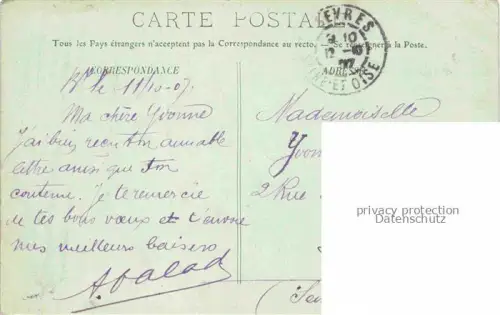 CARTE POSTALE
Tous les Pays étrangers n'acceptent pas la Correspondance au recto. — Se renseigner à la Poste.
CORRESPONDANCE
ADRESSE
SEVRES
12 -10
07
SEINE-ET-OISE
le 11-10-07
Ma chère Yvonne
J'ai bien reçu ton aimable
lettre ainsi que ton
contenu. Je te remercie
de tes bons vœux et t'envoie
mes meilleurs baisers
Mademoiselle
Yvon
2 Rue
privacy protection
Datenschutz
(Se